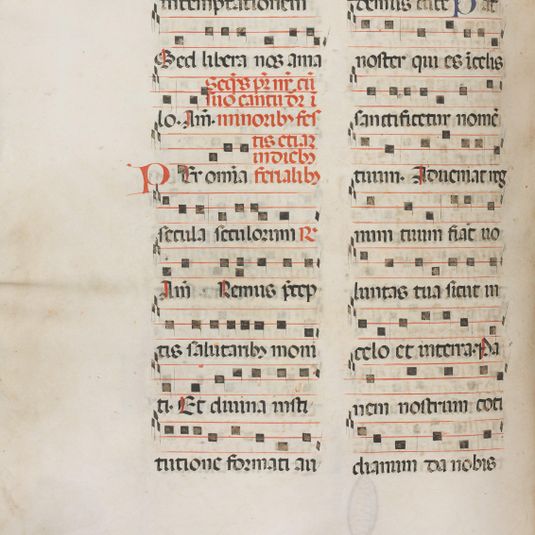 intemptationem
Sed libera nos a ma
seqr pr nr cu
suo cantu dr i
lo. Am. minorib fes
tis etiaz
in dieb
Per omia ferialib
secula seculorum R
Am Oremus precep
tis salutarib moni
ti. Et diuina insti
tutione formati au
demus dicere Pat
noster qui es i celis
sanctificetur nome
tuum. Adueniat reg
num tuum fiat uo
luntas tua sicut in
celo et in terra. Pa
nem nostrum coti
dianum da nobis